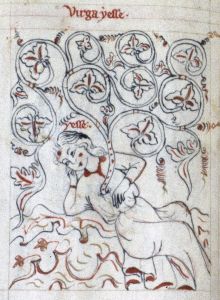 Virga yesse.
yesse.